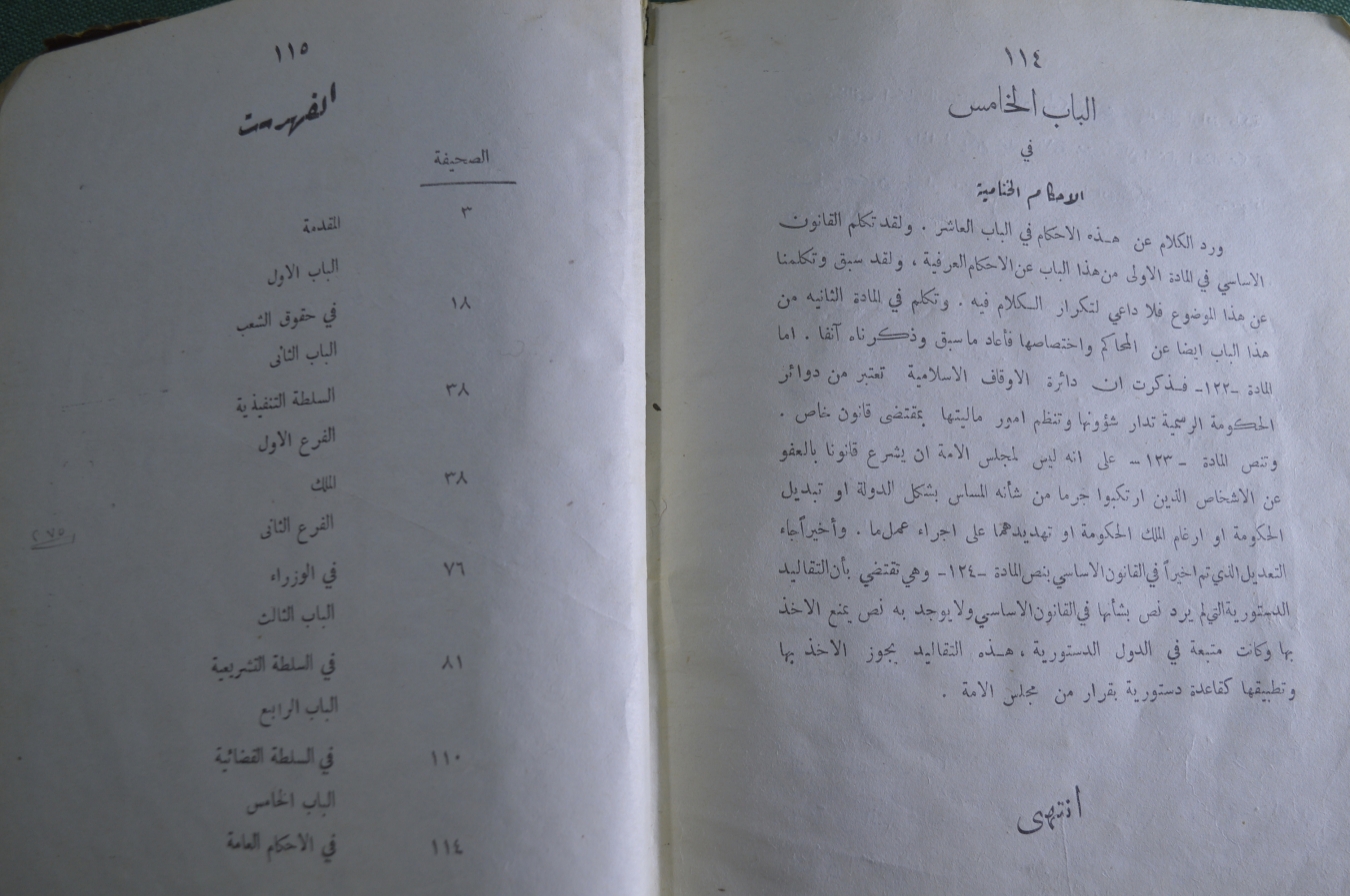 ١١٤
الباب الخامس
في
الاحكام الختامية
ورد الكلام عن هـذه الاحكام في الباب العاشر . ولقد تكلم القانون
الاساسي في المادة الاولى من هذا الباب عن الاحكام العرفية ، ولقد سبق وتكلمنا
عن هذا الموضوع فلا داعي لتكرار الـكلام فيه . وتكلم في المادة الثانيه من
هذا الباب ايضا عن المحاكم واختصاصها فأعاد ما سبق وذكرناه آنفا . اما
المادة -١٢٢- فـذكرت ان دائرة الاوقاف الاسلامية تعتبر من دوائر
الحكومة الرسمية تدار شؤونها وتنظم امور ماليتها بمقتضى قانون خاص .
وتنص المادة - ١٢٣ - على انه ليس لمجلس الامة ان يشرع قانونا بالعفو
عن الاشخاص الذين ارتكبوا جرما من شأنه المساس بشكل الدولة او تبديل
الحكومة او ارغام الملك الحكومة او تهديدهما على اجراء عمل ما . وأخيراً جاء
التعديل الذي تم اخيراً في القانون الاساسي بنص المادة -١٢٤- وهي تقتضي بأن التقاليد
الدستورية التي لم يرد نص بشأنها في القانون الاساسي ولا يوجد به نص يمنع الاخذ
بها وكانت متبعة في الدول الدستورية ، هـذه التقاليد يجوز الاخذ بها
وتطبيقها كقاعدة دستورية بقرار من مجلس الامة .
انتهى
١١٥
الفهرست
الصحيفة
٣ المقدمة
الباب الاول
١٨ في حقوق الشعب
الباب الثانى
٣٨ السلطة التنفيذية
الفرع الاول
٣٨ الملك
الفرع الثانى
٧٦ في الوزراء
الباب الثالث
٨١ في السلطة التشريعية
الباب الرابع
١١٠ في السلطة القضائية
الباب الخامس
١١٤ في الاحكام العامة